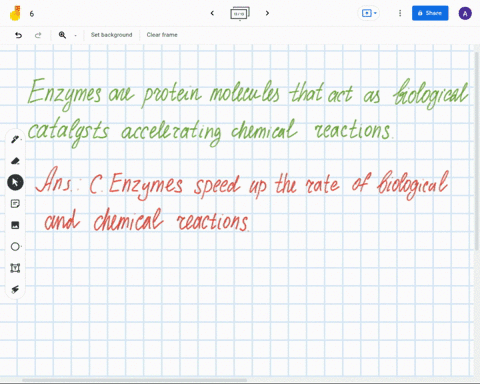 6
12 / 12
Share
A
Set background
Clear frame
Enzymes are protein molecules that act as biological
catalysts accelerating chemical reactions.
Ans.: C. Enzymes speed up the rate of biological
and chemical reactions.